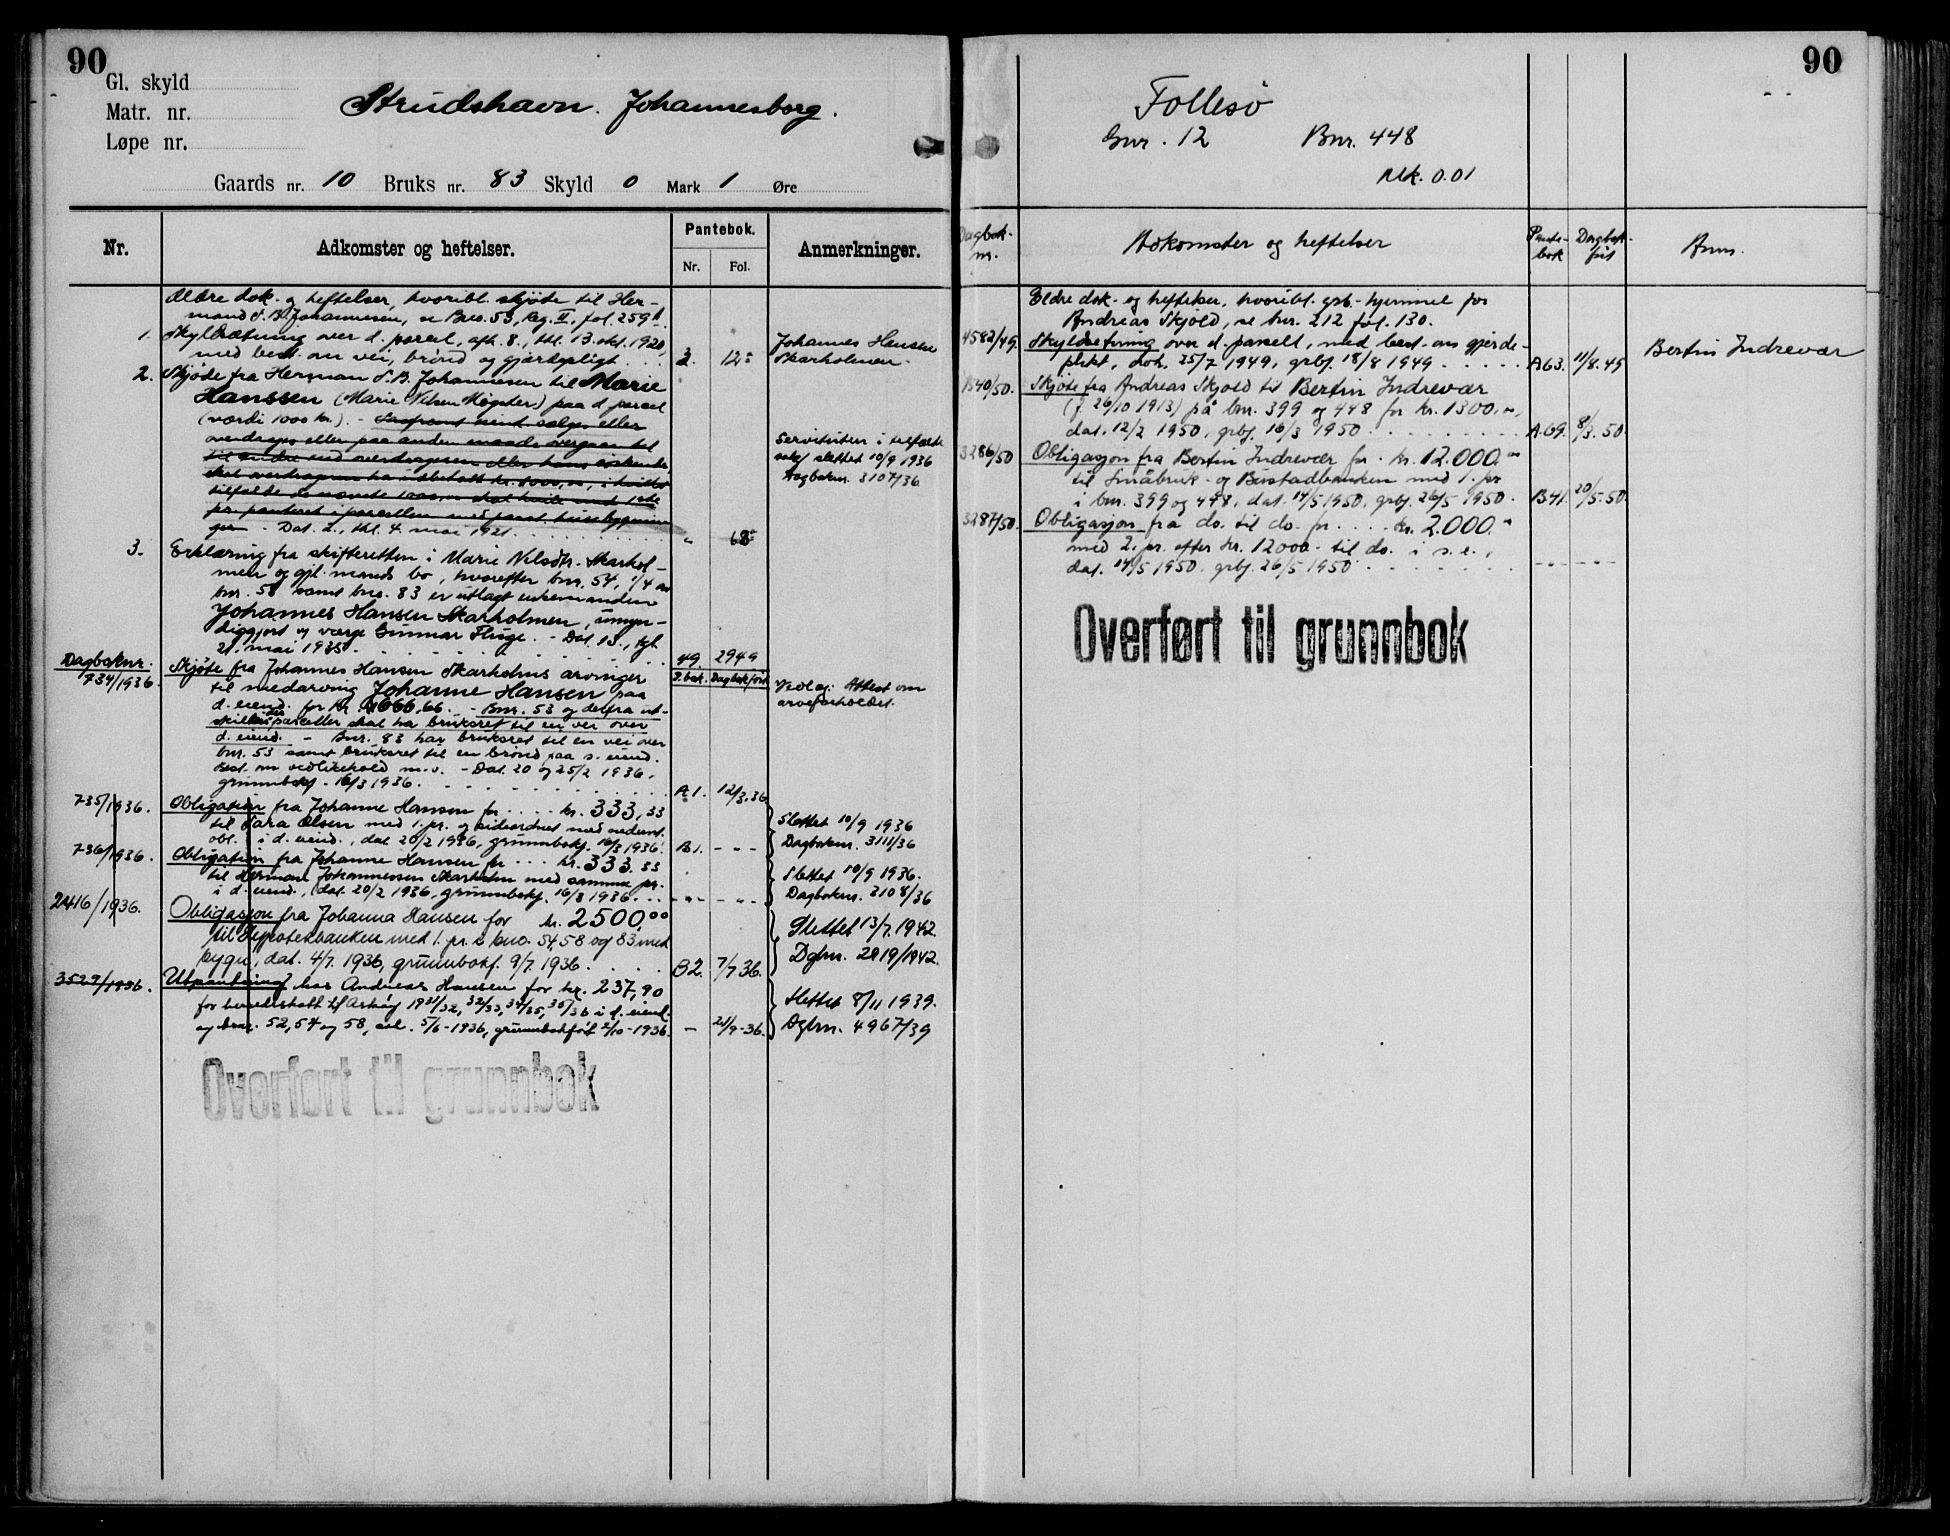 90
Gl. skyld
Matr. nr.
Løpe nr.
Strudshavn. Johannesborg.
Gaards nr. 10 Bruks nr. 83 Skyld 0 Mark 1 Øre
Nr. Adkomster og heftelser. Pantebok. Anmerkninger.
Nr. Fol.
Ældre dok. og heftelser, hvoribl. skjøte til Her-
mand S. B. Johannesen, se Bno. 53, Reg. II, fol. 259
1. Skyldsætning over d. parcel, afh. 8., thl. 13. okt. 1920,
med best. om vei, brønd og gjærdepligt . . 2. 12
Johannes Hansen
Skarholmen.
2. Skjøde fra Herman S. B. Johannesen til Marie
Hanssen (Marie Nilsen Møgster) paa d. parcel
(værdi 1000 kr.). – Saafremt mind. sælges eller
overdrages eller paa anden maade overgaar til
til andre end overdrageren eller hans
skal overdrageren ha utbetalt kr. 1000,00, i hvilket
tilfælde de nævnte 1000,00 skal hvile med 1ste
pr. panteret i parcellen med paast. husebygnin-
ger. – Dat. 2., thl. 4. mai 1921. . . . . " 68
Servituten i
slettet 10/9 1936
Dagboknr. 3107/36
3. Erklæring fra skifteretten i Marie Nilsdtr. Skarhol-
men og gjl. mands bo, hvorefter bnr. 54, 1/4 av
bnr. 58 samt bno. 83 er utlagt enkemanden
Johannes Hansen Skarholmen, umyn-
diggjort og værge Gunnar Fluge. – Dat. 13., tgl.
21. mai 1935. . . . . 49. 2949
Dagboknr. P.bok. Dagbokført
734/1936. Skjøte fra Johannes Hansen Skarholms arvinger
til medarving Johanne Hansen paa
d. eiend. for kr. 1666,66. – Bnr. 53 og derfra ut-
skilte parceller skal ha bruksret til en vei over
d. eiend. – Bnr. 83 har bruksret til en vei over
bnr. 53 samt bruksret til en brønd paa s. eiend.
Best. om vedlikehold m.v. – Dat. 20 og 25/2 1936,
grunnbokf. 16/3 1936. . . . . A 1. 12/3.36
Vedlag: Attest om
arveforholdet.
735/1936. Obligation fra Johanne Hansen for . . . kr. 333,33
til Sara Olsen med 1. pr. og sideordnet med nedenst.
obl. i d. eiend., dat. 20/2 1936, grunnbokf. 16/3 1936. B 1. – – –
Slettet 10/9 1936
Dagboknr. 3111/36
736/1936. Obligation fra Johanne Hansen for . . . kr. 333,33
til Herman Johannessen Skarholm med samme pr.
i d. eiend., dat. 20/2 1936, grunnbokf. 16/3 1936. . . – " – – " –
Slettet 10/9 1936.
Dagboknr. 3108/36
2416/1936. Obligasjon fra Johanna Hansen for kr. 2500,00
til Hypotekbanken med 1. pr. i bno. 54, 58 og 83 med
bygn., dat. 4/7. 1936, grunnbokf. 9/7. 1936. . . . B 2. 7/7 36.
Slettet 13/7. 1942.
Dgbnr. 2819/1942.
3527/1936. Utpantning hos Andreas Hansen for kr. 237,90
for kommuneskatt til Askøy 1931/32, 32/33, 34/35, 35/36 i d. eiend.
og bnr. 52, 54 og 58, avh. 5/6-1936, grunnbokført 2/10-1936. – 21/9-36.
Slettet 8/11 1939.
Dgbnr. 4967/39
Overført til grunnbok
90
Follesø
Gnr. 12 Bnr. 448
Mk. 0.01
Dagbok-nr. Adkomster og heftelser Pante-bok Dagbok-ført Anm.
Eldre dok. og heftelser, hvoribl. grb.-hjemmel for
Andreas Skjold, se bnr. 212 fol. 130.
4582/49. Skyldsetning over d. parsell, med best. om gjerde-
plikt, avh. 25/7 1949, grbf. 18/8 1949 . . . . . A63. 11/8.49
Bertin Indrevær
1340/50. Skjøte fra Andreas Skjold til Bertin Indrevær
(f. 26/10 1913) på bnr. 399 og 448 for kr. 1300,00,
dat. 12/2 1950, grbf. 16/3 1950 . . . . . A69. 8/3. 50.
3286/50 Obligasjon fra Bertin Indrevær for . kr. 12.000.00
til Småbruk- og Bustadbanken med 1. pr.
i bnr. 399 og 448, dat. 14/5 1950, grbf. 26/5 1950. B41. 20/5.50.
3287/50. Obligasjon fra do. til do. for . . . . kr. 2.000.00
med 2. pr. efter kr. 12000.– til do. i s. e.,
dat. 14/5 1950, grbf. 26/5 1950 . . . . . – – – – –
Overført til grunnbok